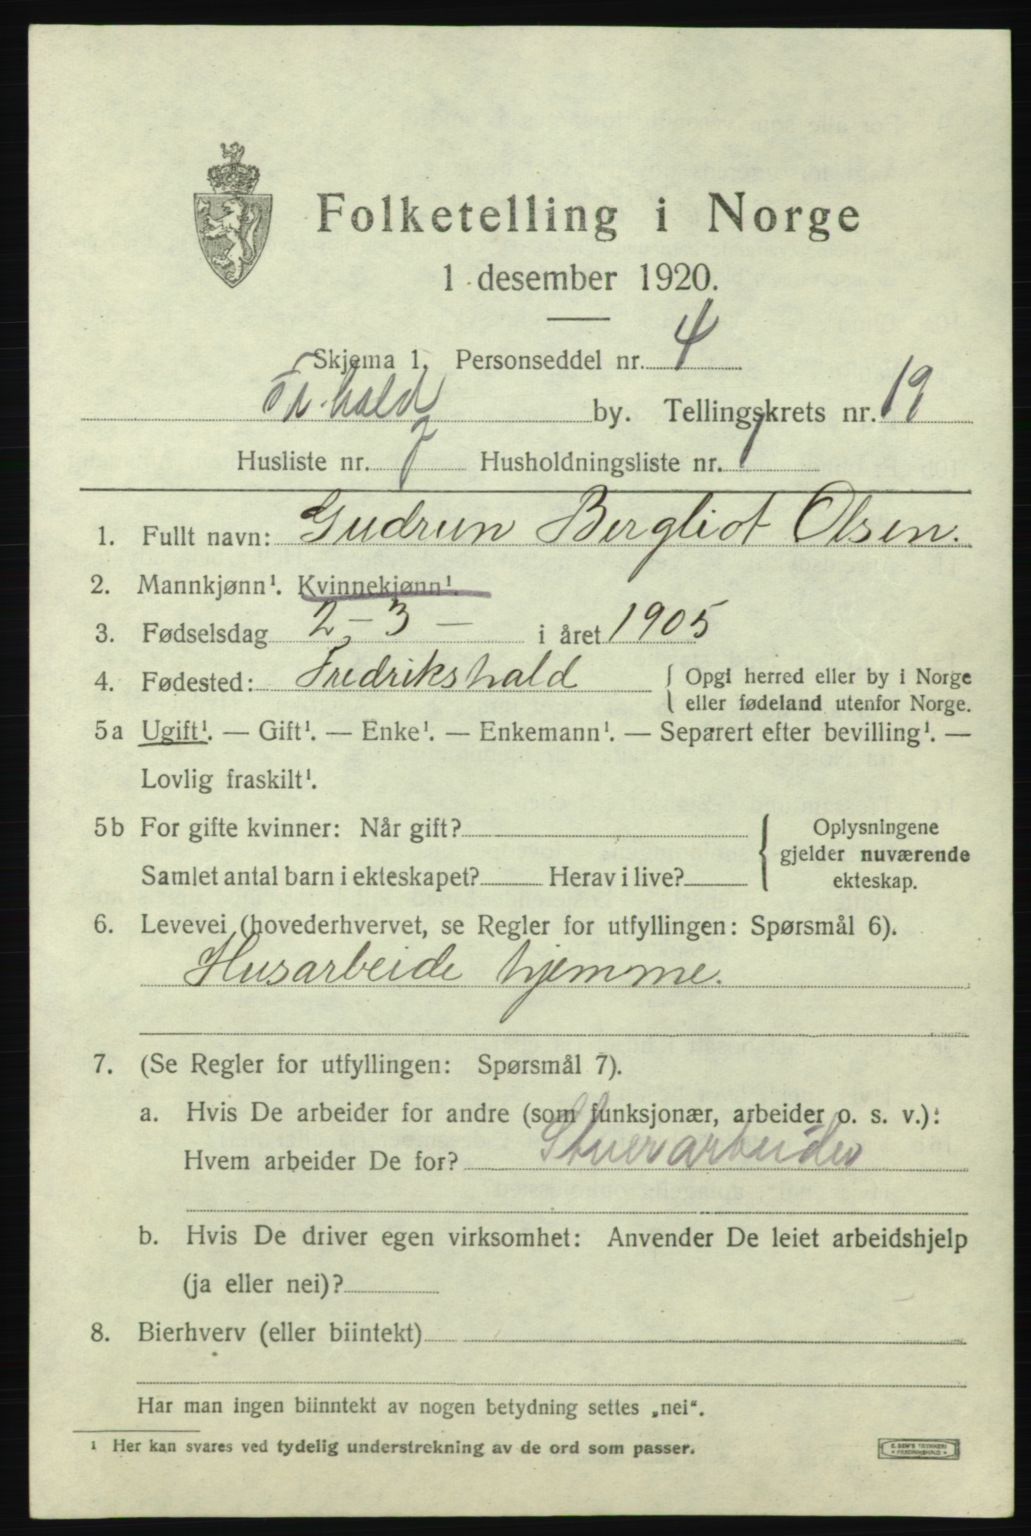 Folketelling i Norge
1 desember 1920.
Skjema 1. Personseddel nr. 4
Fr.hald by. Tellingskrets nr. 19
Husliste nr. 7 Husholdningsliste nr. 1
1. Fullt navn: Gudrun Bergliot Olsen.
2. Mannkjønn¹. Kvinnekjønn¹.
3. Fødselsdag 2 - 3 - i året 1905
4. Fødested: Fredrikshald { Opgi herred eller by i Norge
eller fødeland utenfor Norge.
5a Ugift¹. — Gift¹. — Enke¹. — Enkemann¹. — Separert efter bevilling¹. —
Lovlig fraskilt¹.
5b For gifte kvinner: Når gift?
Samlet antal barn i ekteskapet? Herav i live?
{ Oplysningene
gjelder nuværende
ekteskap.
6. Levevei (hovederhvervet, se Regler for utfyllingen: Spørsmål 6).
Husarbeide hjemme.
7. (Se Regler for utfyllingen: Spørsmål 7).
a. Hvis De arbeider for andre (som funksjonær, arbeider o. s. v.):
Hvem arbeider De for? Stuerarbeider
b. Hvis De driver egen virksomhet: Anvender De leiet arbeidshjelp
(ja eller nei)?
8. Bierhverv (eller biintekt)
Har man ingen biinntekt av nogen betydning settes „nei“.
¹ Her kan svares ved tydelig understrekning av de ord som passer.